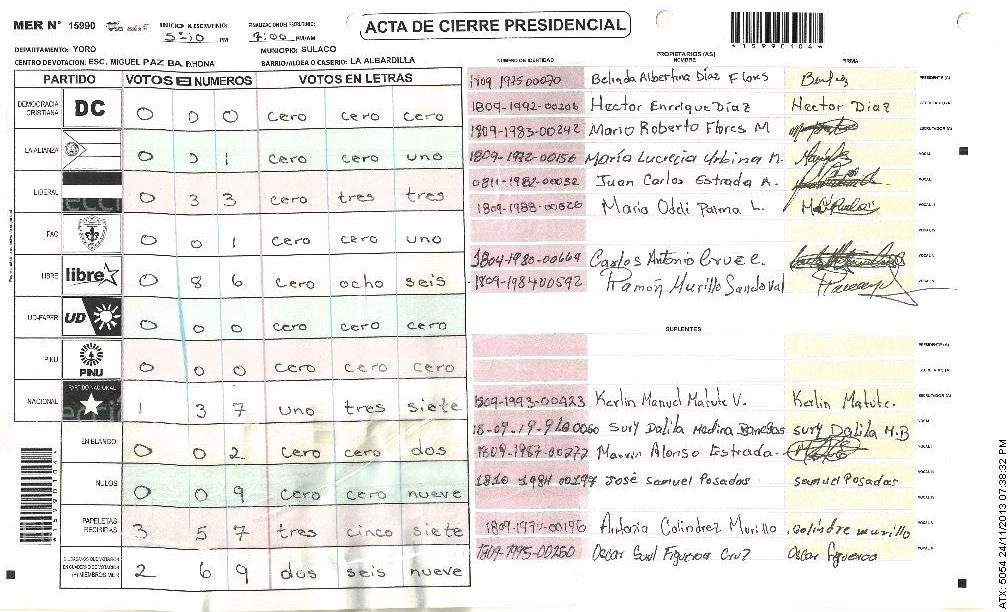 MER N° 15990
INICIO DEL ESCRUTINIO: 5:10 PM
FINALIZACION DEL ESCRUTINIO: 7:00 PM/AM
ACTA DE CIERRE PRESIDENCIAL
*15990104*
DEPARTAMENTO: YORO
MUNICIPIO: SULACO
CENTRO DE VOTACION: ESC. MIGUEL PAZ BARAHONA
BARRIO/ALDEA O CASERIO: LA ALBARDILLA
PARTIDO VOTOS EN NUMEROS VOTOS EN LETRAS
DEMOCRACIA CRISTIANA DC 0 0 0 cero cero cero
LA ALIANZA 0 0 1 cero cero uno
LIBERAL 0 3 3 cero tres tres
FAC 0 0 1 cero cero uno
LIBRE libre 0 8 6 cero ocho seis
UD-FAPER UD 0 0 0 cero cero cero
PINU PINU 0 0 0 cero cero cero
NACIONAL PARTIDO NACIONAL 1 3 7 uno tres siete
EN BLANCO 0 0 2 cero cero dos
NULOS 0 0 9 cero cero nueve
PAPELETAS RECIBIDAS 3 5 7 tres cinco siete
CIUDADANOS QUE VOTARON EN CUADERNO DE VOTACION (+) MIEMBROS MER 2 6 9 dos seis nueve
PROPIETARIOS (AS)
NUMERO DE IDENTIDAD NOMBRE FIRMA
1809 1975 00070 Belinda Albertina Díaz Flores PRESIDENTE (A)
1809-1992-00206 Hector Enrrique Díaz Hector Diaz SECRETARIO (A)
1809-1983-00242 Mario Roberto Flores M ESCRUTADOR (A)
1809-1972-00156 María Lucrecia Urbina M. VOCAL I
0811-1982-00032 Juan Carlos Estrada A. VOCAL II
1809-1988-00526 Maria Odeli Palma L. VOCAL III
VOCAL IV
1804-1980-00664 Carlos Antonio Cruz C. VOCAL V
1809-1984 00592 Ramón Murillo Sandoval VOCAL VI
SUPLENTES
PRESIDENTE (A)
SECRETARIO (A)
1809-1993-00423 Kerlin Manuel Matute V. Kerlin Matute. ESCRUTADOR (A)
Sury Dalila Medina Banegas Sury Dalila M.B VOCAL I
1809-1987-00272 Marvin Alonso Estrada VOCAL II
1810 1984 00197 José Samuel Posadas Samuel Posadas VOCAL III
VOCAL IV
Antonia Colindrez Murillo colindre murillo VOCAL V
1809-1995-00250 Oscar Saul Figueroa Cruz Oscar Figueroa VOCAL VI
*15990104*
ATX: 5054 24/11/2013 07:38:32 PM